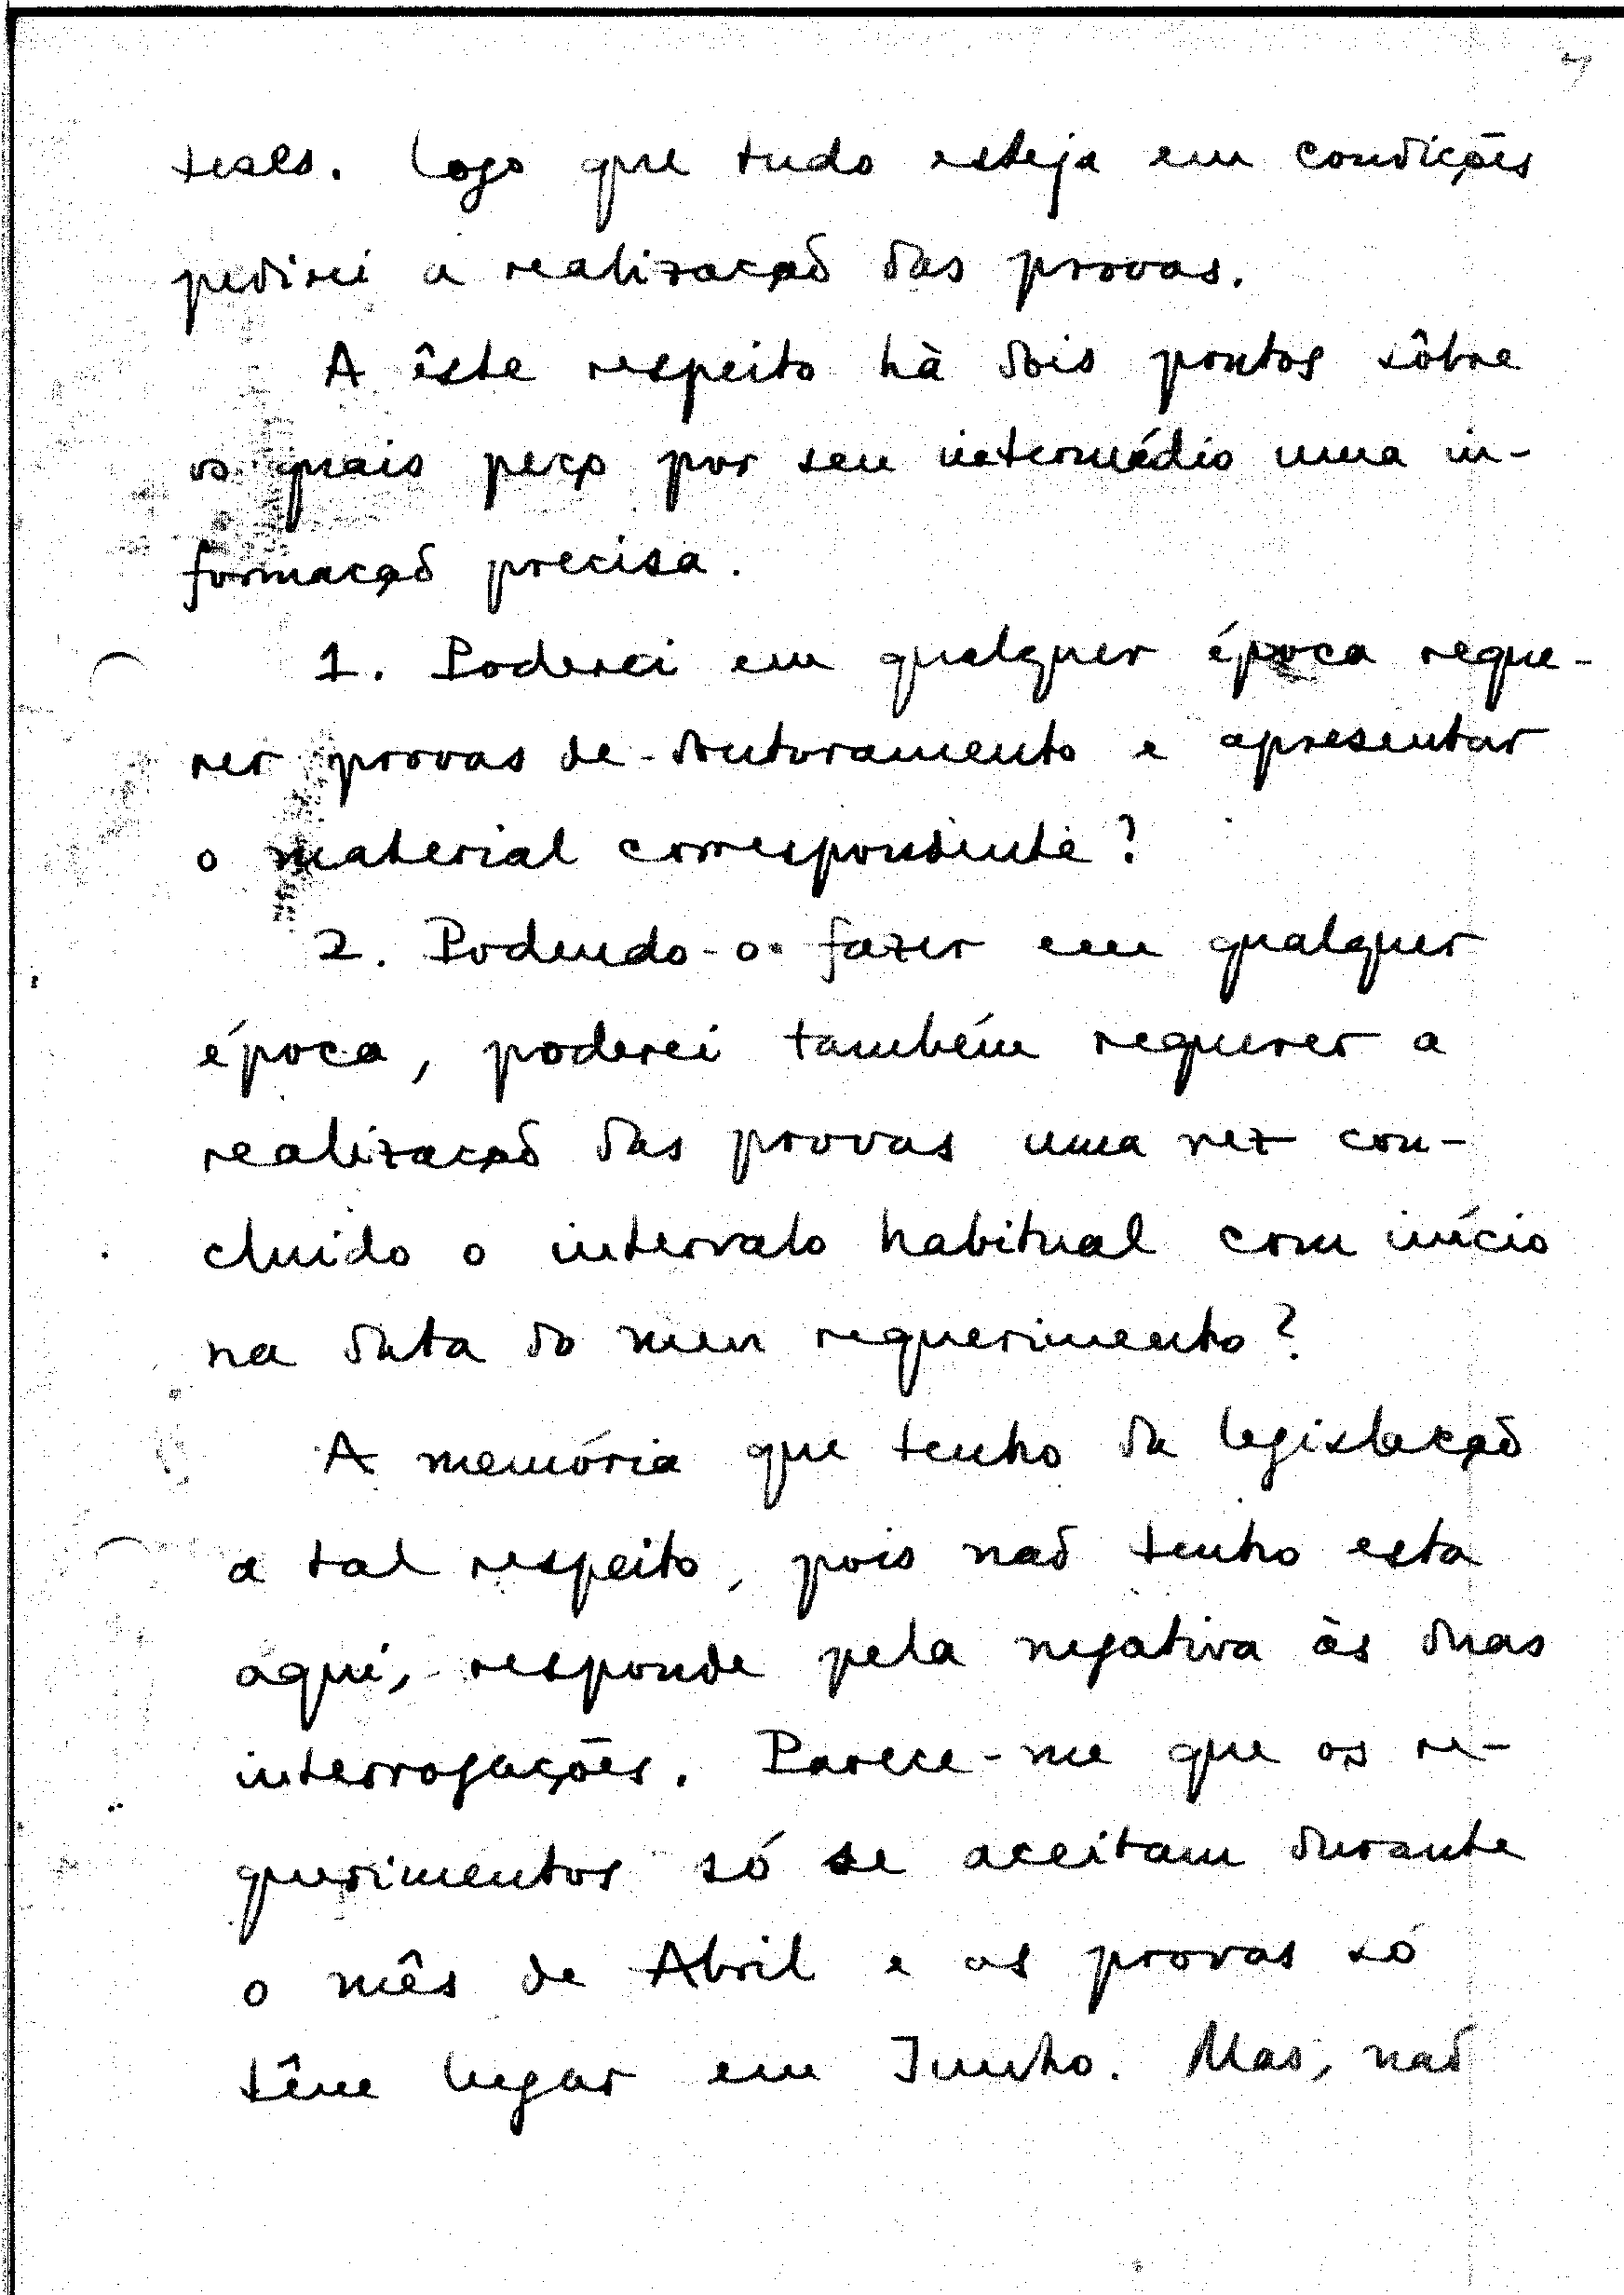 teses. Logo que tudo esteja em condições
pedirei a realização das provas.
A êste respeito hà dois pontos sôbre
os quais peço por seu intermédio uma in-
formação precisa.
1. Poderei em qualquer época reque-
rer provas de doutoramento e apresentar
o material correspondente?
2. Podendo-o fazer em qualquer
época, poderei também requerer a
realização das provas uma vez con-
cluido o intervalo habitual com início
na data do meu requerimento?
A memória que tenho da legislação
a tal respeito, pois não tenho esta
aqui, responde pela negativa às duas
interrogações. Parece-me que os re-
querimentos só se aceitam durante
o mês de Abril e as provas só
têm lugar em Junho. Mas, não